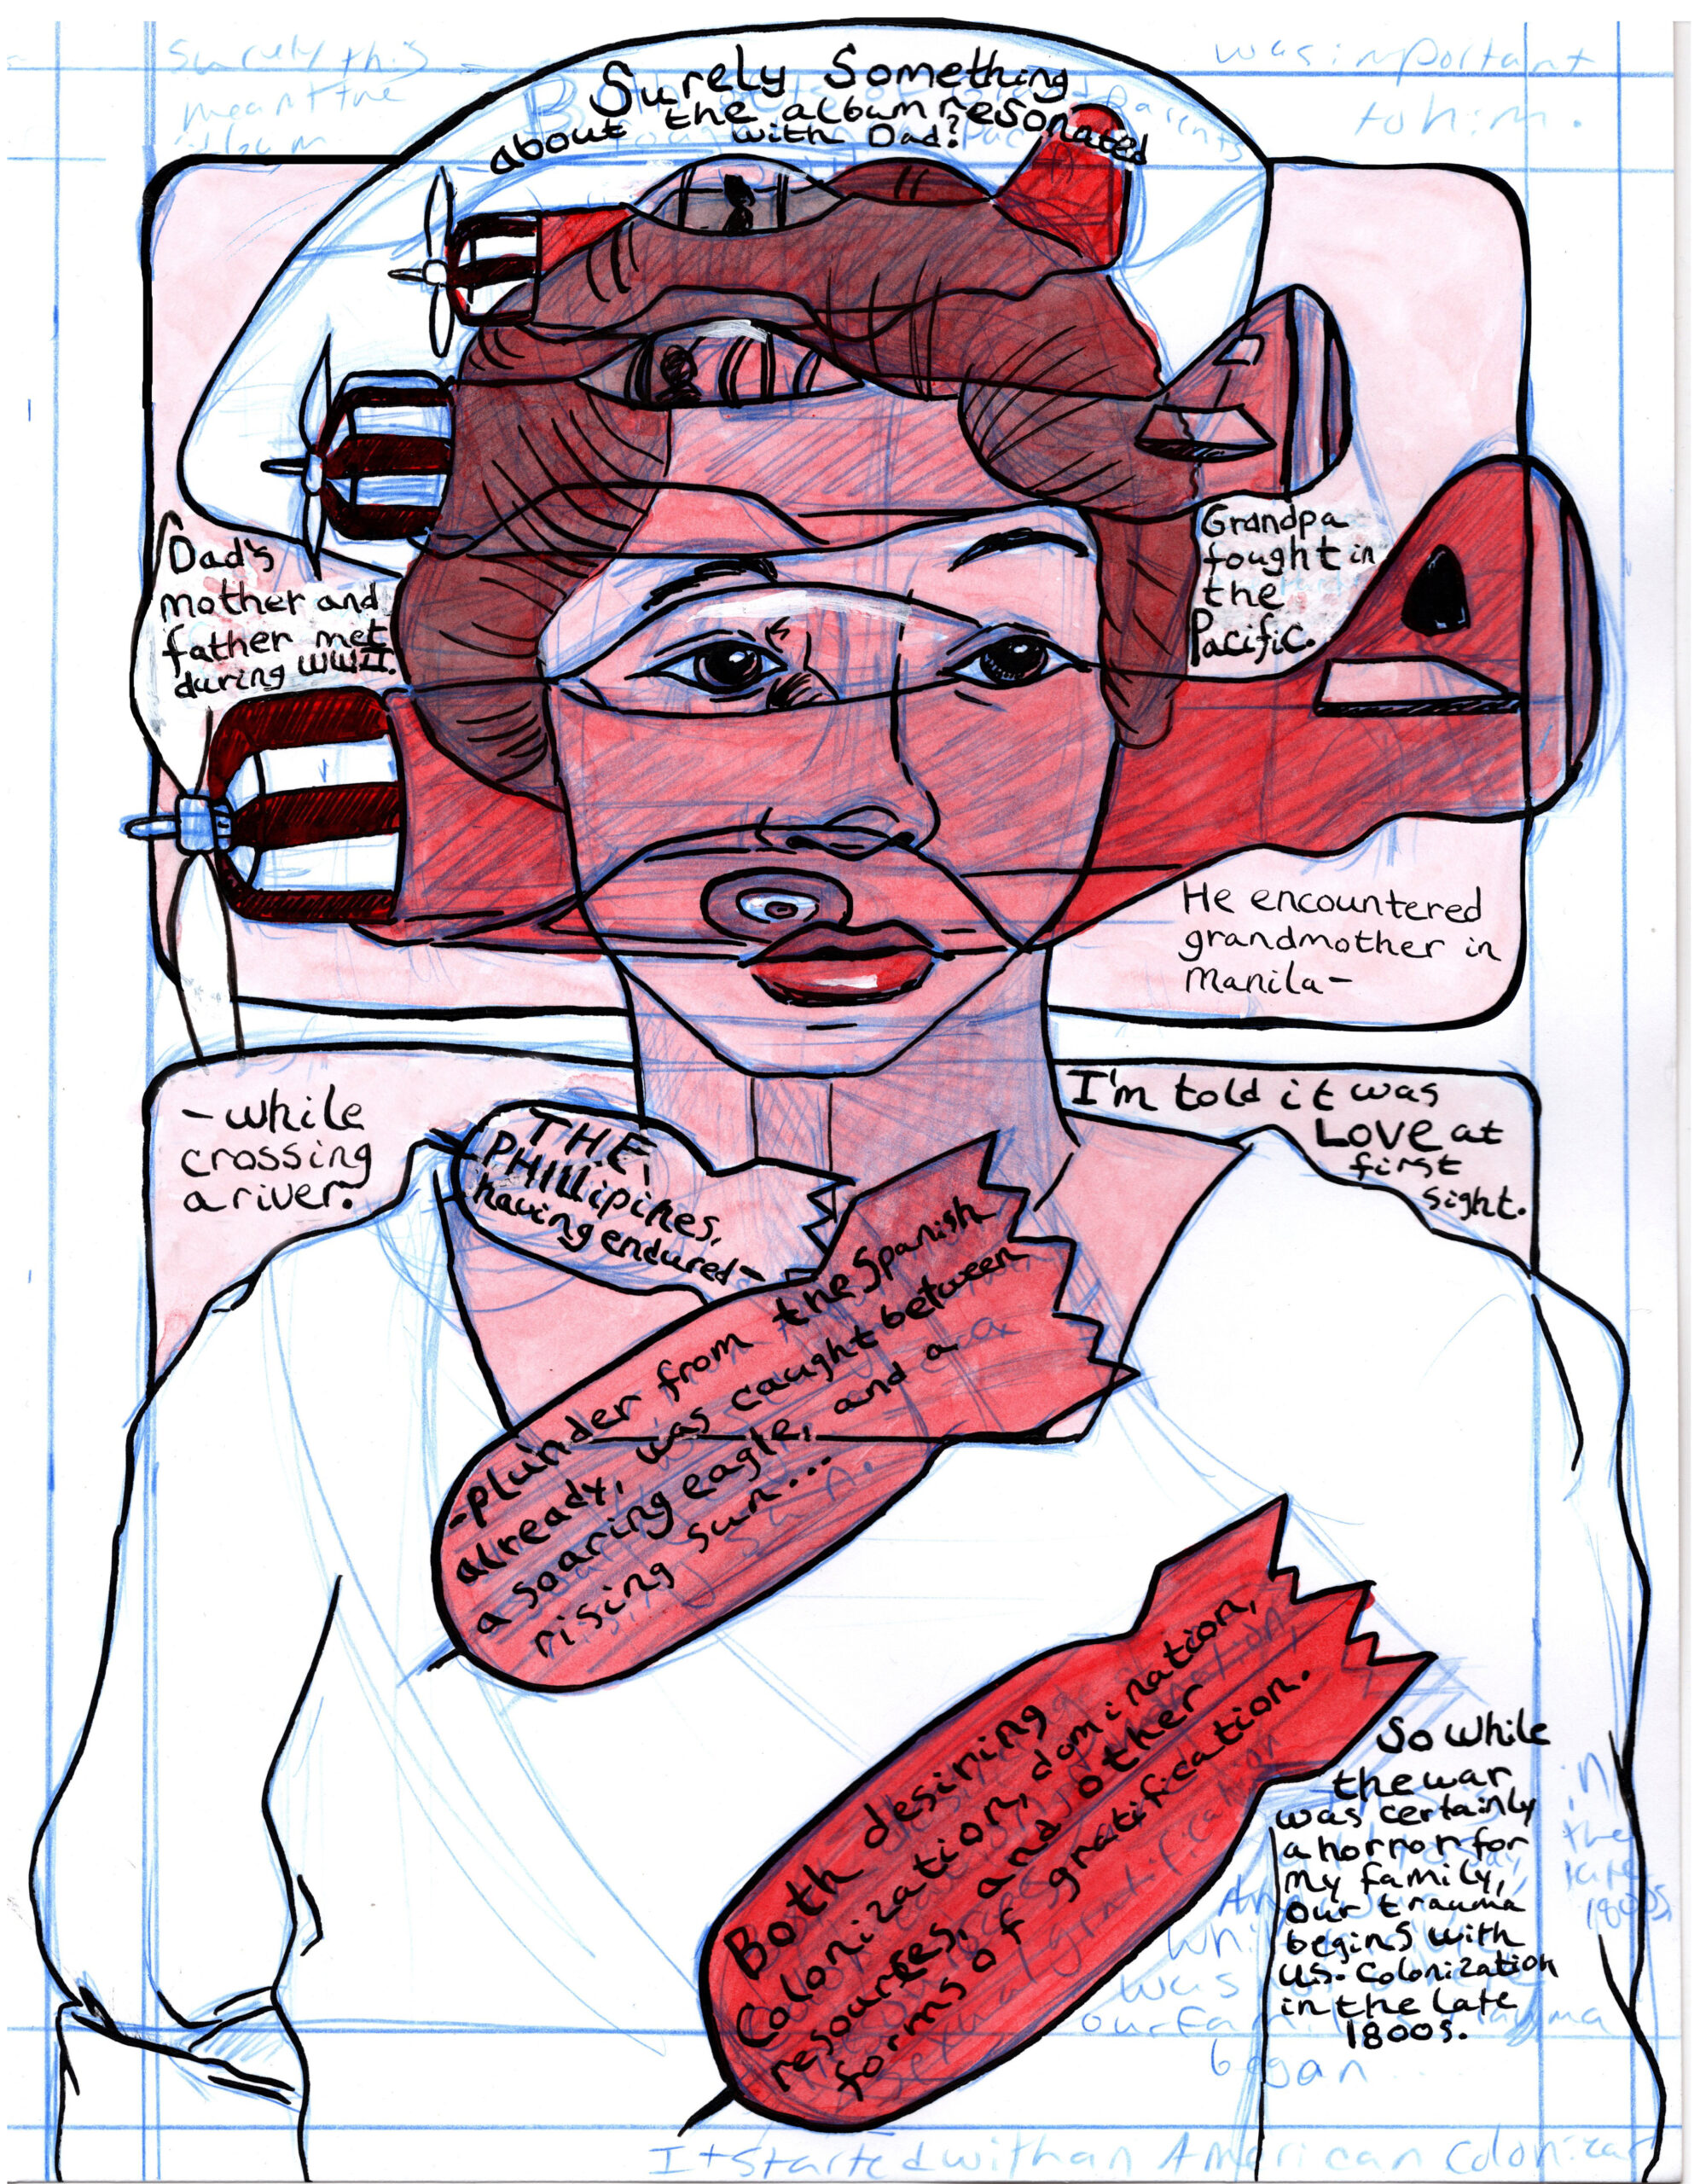 surely this
meant the
album
was important
to him.
Surely Something
about the album resonated
with Dad?
Dad's
mother and
father met
during WWII.
Grandpa
fought in
the
Pacific.
He encountered
grandmother in
Manila-
-while
crossing
a river.
I'm told it was
LOVE at
first
sight.
THE
PHillipines,
having endured-
-plunder from the Spanish
already, was caught between
a soaring eagle, and a
rising sun...
Both desiring
Colonization, domination,
resources, and other
forms of gratification.
So while
the war
was certainly
a horror for
my family,
our trauma
begins with
U.S. Colonization
in the late
1800s.
in
the
late
1800s
was
our family
began
It started with an American Coloniza